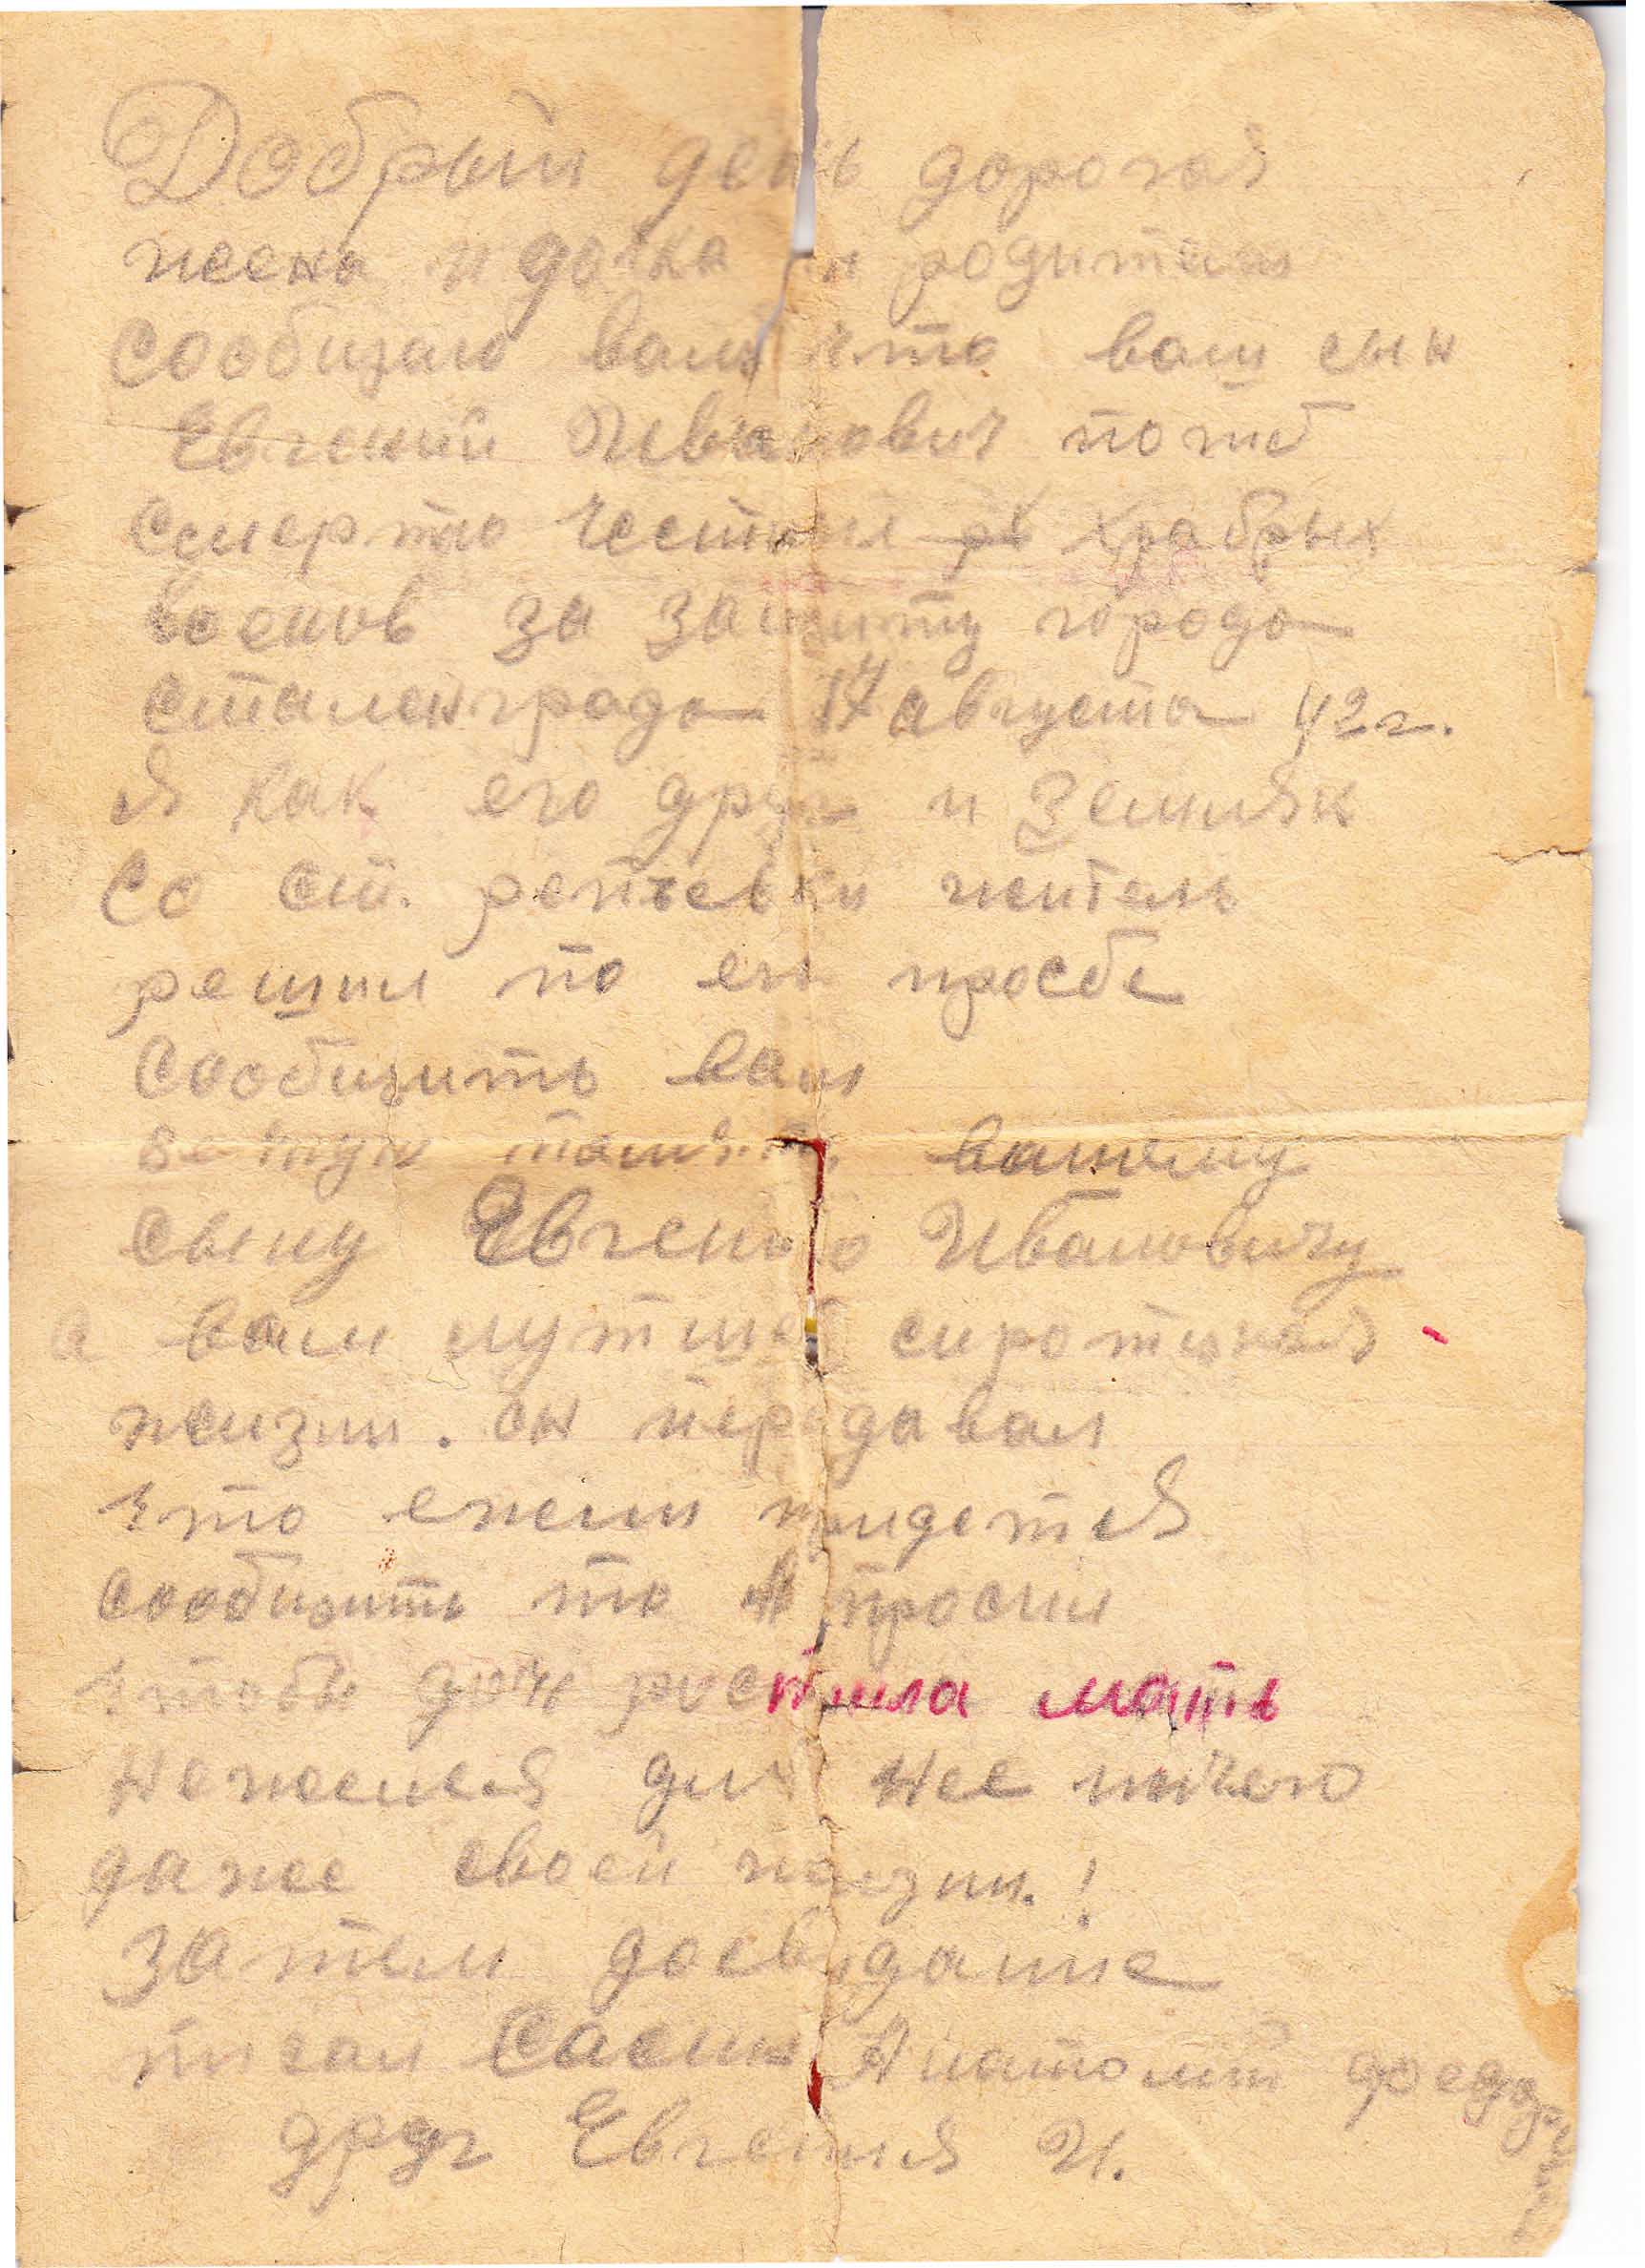 Добрый день дорогая
жена и дочка и родители
сообщаю вам что ваш сын
Евгений Иванович погиб
смертю честных храбрых
военов за защиту города
сталенграда 17 августа 42 г.
Я как его друг и земляк
со ст. репьевки житель
решил по его просбе
сообщить вам
вечную память вашему
сыну Евгению Ивановичу
а вам лутшей сиротцкая
жизни. он передавал
что ежели придется
сообщить то просил
чтобы дочь ростила мать
нежелея для нее ничего
даже своей жизни.!
затем досвидание
писал Сасин Анатолий
друг Евгения И.